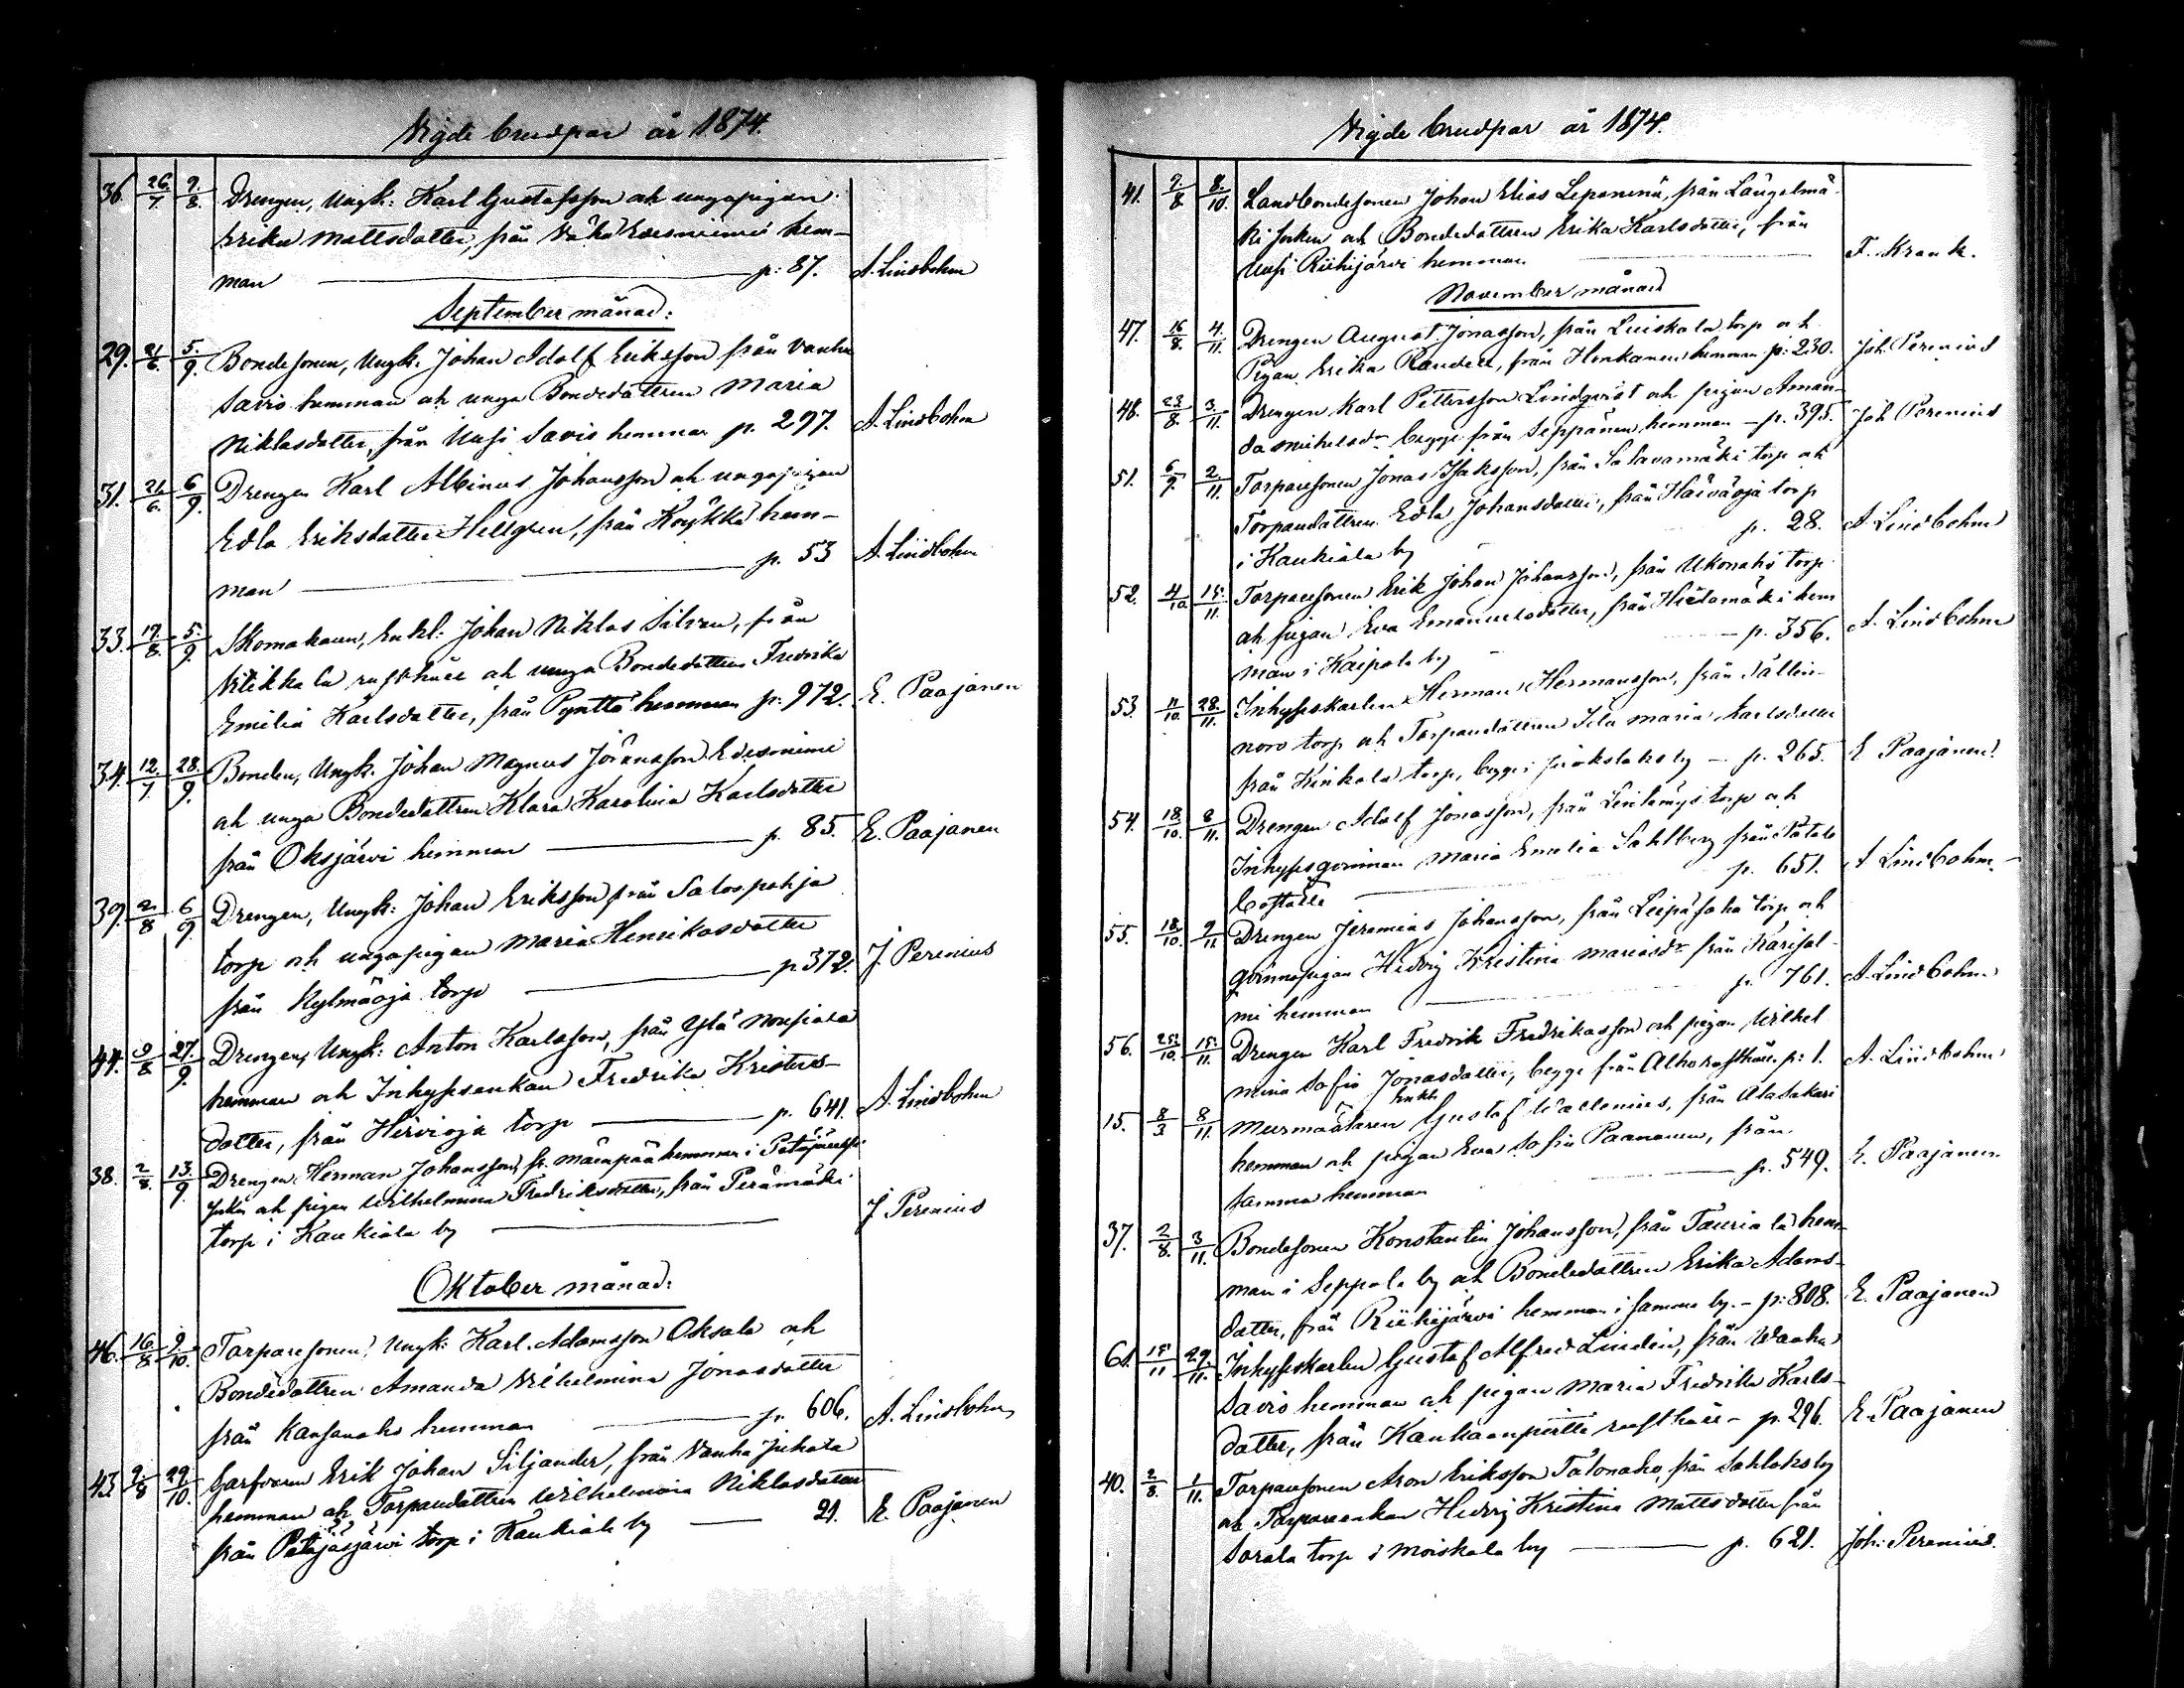 Vigde brudpar år 1874.
36. 26/7. 9/8. Drengen, Ungk: Karl Gustafsson och unga pigan
Erika Mattsdotter, från Vähä Edesniemi hem-
man p: 87. A. Lindbohm
September månad:
29. 21/6. 5/9. Bondesonen, Ungk. Johan Adolf Eriksson från Vanha
Savio hemman och unga Bondedottren Maria
Niklasdotter, från Uusi Savio hemman p. 297. A. Lindbohm
31. 21/6. 6/9. Drengen Karl Albinus Johansson och unga pigan
Edla Eriksdotter Hellgren, från Köykkä hem-
man p. 53 A. Lindbohm
33. 17/8. 5/9. Skomakaren, Enkl: Johan Niklas Silvan, från
Klikkala rusthåll och unga Bondedottren Fredrika
Emilia Karlsdotter, från Pynttö hemman p: 972. E. Paajanen
34. 12/7. 28/9. Bonden, Ungk. Johan Magnus Jöransson Edesniemi
och unga Bondedottren Klara Karolina Karlsdotter
från Oksjärvi hemman p. 85. E. Paajanen
39. 2/8 6/9. Drengen, Ungk: Johan Eriksson från Salospohja
torp och unga pigan Maria Henriksdotter
från Kylmäoja torp p 372. J. Perenius
44. 9/8 27/9. Drengen, Ungk: Anton Karlsson, från Ylä Nousiala
hemman och Inhysenkan Fredrika Kristers-
dotter, från Hervioja torp p. 641. A. Lindbohm
38. 2/8. 13/9. Drengen Herman Johansson, fr. Mäenpää hemman i Petäjävesi
sokn och pigan Wilhelmina Fredriksdotter, från Perämäki
torp i Kaukiala by J Perenius
Oktober månad:
46. 16/8. 9/10. Torparesonen, Ungk: Karl Adamsson Oksala och
Bondedottren Amanda Vilhelmina Jonasdotter
från Kansanaho hemman p. 606. A. Lindbohm
43. 9/8 29/10. Garfvaren Erik Johan Siljander, från Vanha Juhola
hemman och Torpardottren Wilhelmina Niklasdotter
från Petäjäsjärvi torp i Kaukiala by 21. E. Paajanen
Vigde brudpar år 1874.
41. 9/8. 8/10. Landbondesonen Johan Elias Leponemi, från Längelmä-
ki socken och Bondedottren Erika Karlsdotter, från
Uusi Riihijärvi hemman F. Krank.
November månad
47. 16/8. 4/11. Drengen August Jonasson, från Luiskala torp och
Pigan Erika Randell, från Honkanen hemman p: 230. Joh: Perenius
48. 23/8. 3/11. Drengen Karl Pettersson Lindqvist och pigan Aman-
da Mickelsdr begge från Seppänen hemman p. 395. Joh Perenius
51. 6/9. 2/11. Torparesonen Jonas Isaksson, från Salavamäki torp och
Torpardottren Edla Johansdotter, från Haiväoja torp
i Kaukiala by p. 28. A Lindbohm
52. 4/10. 15/11. Torparesonen Erik Johan Johansson, från Ukonaho torp
och pigan Eva Emanuelsdotter, från Hietamäki hem
man i Kaipola by p. 356. A. Lindbohm
53. 11/10. 28/11. Inhyseskarlen Herman Hermansson, från Tällin-
noro torp och Torpardottren Ida Maria Karlsdotter
från Kinkala torp, begge i Juokslaks by p. 265. E Paajanen
54. 18/10. 8/11. Drengen Adolf Jonasson, från Lentomys torp och
Inhysesqvinnan Maria Emilia Sahlberg från Patala
boställe p. 651. A Lindbohm
55. 18/10. 9/11 Drengen Jeremias Johansson, från Leipäsaha torp och
qvinnspigan Hedvig Kristina Mariasdr från Karisal-
mi hemman p. 761. A. Lindbohm
56. 25/10. 15/11. Drengen Karl Fredrik Fredriksson och pigan Wilhel
mina Sofia Jonasdotter, begge från Alho rusthåll p: 1. A. Lindbohm
15. 8/3 8/11. Murmästaren Enkl. Gustaf Wallenius, från Alasakari
hemman och pigan Eva Sofia Paananen, från
samma hemman p. 549. E. Paajanen
37. 2/8. 3/11. Bondesonen Konstantin Johansson, från Tauriala hem-
man i Seppola by och Bondedottren Erika Adams-
dotter, från Riihijärvi hemman i samma by. p: 808. E. Paajanen
61. 15/11 29/11. Inhyseskarlen Gustaf Alfred Lindén, från Wanha
Savio hemman och pigan Maria Fredrika Karls-
dotter, från Kauhaanpirtti rusthåll p. 296. E. Paajanen
40. 2/8. 1/11. Torparesonen Aron Eriksson Talonaho, från Sahloks by
och Torpareenkan Hedvig Kristina Mattsdotter från
Sorala torp i Moiskala by p. 621. Joh: Perenius.